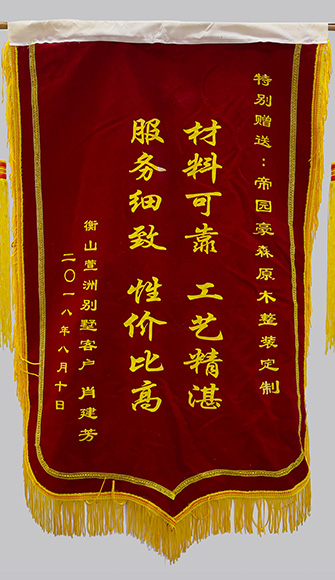 特别赠送：帝园豪森原木整装定制
材料可靠 工艺精湛
服务细致 性价比高
衡山萱洲别墅客户 肖建芳
二〇一八年八月十日